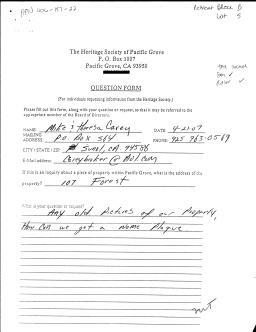 APN 006-157-22
Retreat Block D
Lot 5
The Heritage Society of Pacific Grove
P. O. Box 1007
Pacific Grove, CA 93950
QUESTION FORM
(For individuals requesting information from the Heritage Society.)
Please fill out this form, along with your question or request, so that it may be referred to the
appropriate member of the Board of Directors.
NAME: Mike & Theresa Carey DATE 4-21-07
MAILING
ADDRESS P.O. Box 564 PHONE: 925 963-0569
CITY / STATE / ZIP: Sunol, CA. 94586
E-Mail address: Careybaker@Aol.com
If this is an inquiry about a piece of property within Pacific Grove, what is the address of the
property? 107 Forest
What is your question or request?
Any old pictures of our Property,
How can we get a name Plaque